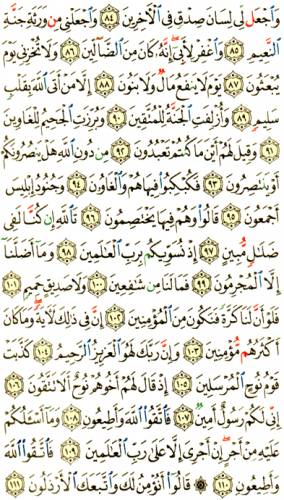 وَاجْعَل لِّي لِسَانَ صِدْقٍ فِي الْآخِرِينَ ٨٤ وَاجْعَلْنِي مِن وَرَثَةِ جَنَّةِ
النَّعِيمِ ٨٥ وَاغْفِرْ لِأَبِي إِنَّهُ كَانَ مِنَ الضَّالِّينَ ٨٦ وَلَا تُخْزِنِي يَوْمَ
يُبْعَثُونَ ٨٧ يَوْمَ لَا يَنفَعُ مَالٌ وَلَا بَنُونَ ٨٨ إِلَّا مَنْ أَتَى اللَّهَ بِقَلْبٍ
سَلِيمٍ ٨٩ وَأُزْلِفَتِ الْجَنَّةُ لِلْمُتَّقِينَ ٩٠ وَبُرِّزَتِ الْجَحِيمُ لِلْغَاوِينَ
٩١ وَقِيلَ لَهُمْ أَيْنَ مَا كُنتُمْ تَعْبُدُونَ ٩٢ مِن دُونِ اللَّهِ هَلْ يَنصُرُونَكُمْ
أَوْ يَنتَصِرُونَ ٩٣ فَكُبْكِبُوا فِيهَا هُمْ وَالْغَاوُونَ ٩٤ وَجُنُودُ إِبْلِيسَ
أَجْمَعُونَ ٩٥ قَالُوا وَهُمْ فِيهَا يَخْتَصِمُونَ ٩٦ تَاللَّهِ إِن كُنَّا لَفِي
ضَلَالٍ مُّبِينٍ ٩٧ إِذْ نُسَوِّيكُم بِرَبِّ الْعَالَمِينَ ٩٨ وَمَا أَضَلَّنَا
إِلَّا الْمُجْرِمُونَ ٩٩ فَمَا لَنَا مِن شَافِعِينَ ١٠٠ وَلَا صَدِيقٍ حَمِيمٍ ١٠١
فَلَوْ أَنَّ لَنَا كَرَّةً فَنَكُونَ مِنَ الْمُؤْمِنِينَ ١٠٢ إِنَّ فِي ذَٰلِكَ لَآيَةً وَمَا كَانَ
أَكْثَرُهُم مُّؤْمِنِينَ ١٠٣ وَإِنَّ رَبَّكَ لَهُوَ الْعَزِيزُ الرَّحِيمُ ١٠٤ كَذَّبَتْ
قَوْمُ نُوحٍ الْمُرْسَلِينَ ١٠٥ إِذْ قَالَ لَهُمْ أَخُوهُمْ نُوحٌ أَلَا تَتَّقُونَ ١٠٦
إِنِّي لَكُمْ رَسُولٌ أَمِينٌ ١٠٧ فَاتَّقُوا اللَّهَ وَأَطِيعُونِ ١٠٨ وَمَا أَسْأَلُكُمْ
عَلَيْهِ مِنْ أَجْرٍ إِنْ أَجْرِيَ إِلَّا عَلَىٰ رَبِّ الْعَالَمِينَ ١٠٩ فَاتَّقُوا اللَّهَ
وَأَطِيعُونِ ١١٠ ۞ قَالُوا أَنُؤْمِنُ لَكَ وَاتَّبَعَكَ الْأَرْذَلُونَ ١١١